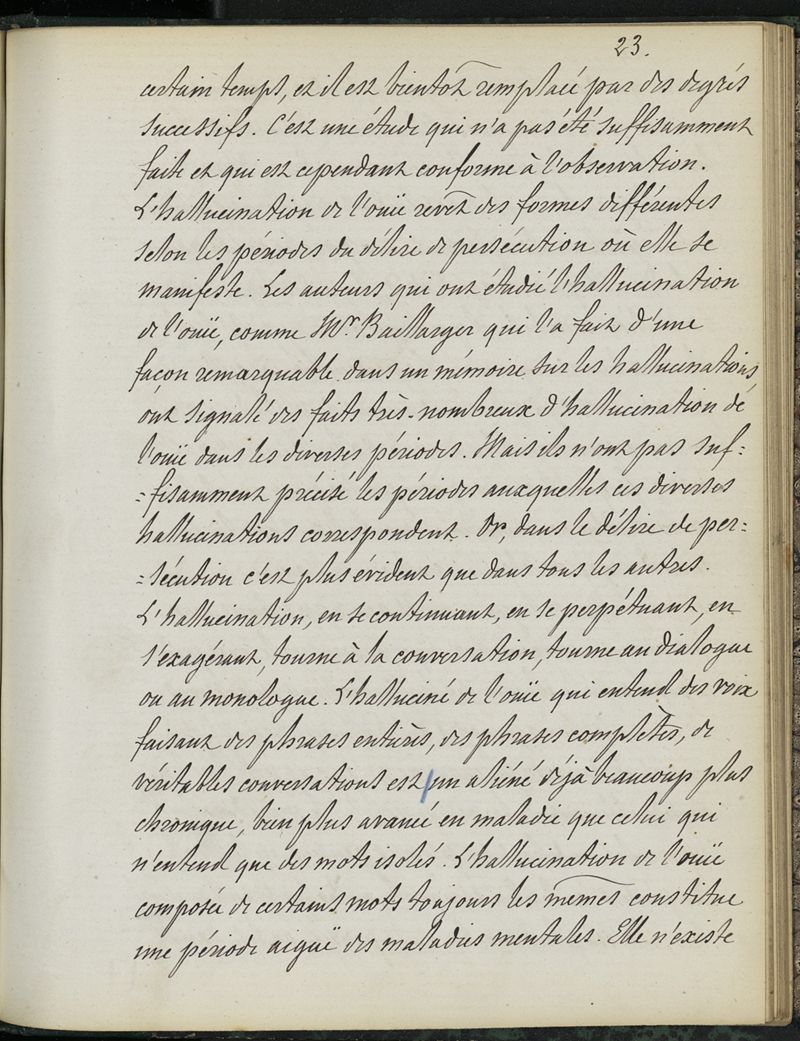 23.
certain temps, et il est bientôt remplacé par des degrés
successifs. C'est une étude qui n'a pas été suffisamment
faite et qui est cependant conforme à l'observation.
L'hallucination de l'ouïe revêt des formes différentes
selon les périodes du délire de persécution où elle se
manifeste. Les auteurs qui ont étudié l'hallucination
de l'ouïe, comme Mr. Baillarger qui l'a fait d'une
façon remarquable dans un mémoire sur les hallucinations,
ont signalé des faits très-nombreux d'hallucination de
l'ouïe dans les diverses périodes. Mais ils n'ont pas suf=
=fisamment précisé les périodes auxquelles ces diverses
hallucinations correspondent. Or, dans le délire de per=
=sécution c'est plus évident que dans tous les autres.
L'hallucination, en se continuant, en se perpétuant, en
s'exagérant, tourne à la conversation, tourne au dialogue
ou au monologue. L'halluciné de l'ouïe qui entend des voix
faisant des phrases entières, des phrases complètes, de
véritables conversations est un aliéné déjà beaucoup plus
chronique, bien plus avancé en maladie que celui qui
n'entend que des mots isolés. L'hallucination de l'ouïe
composée de certains mots toujours les mêmes constitue
une période aiguë des maladies mentales. Elle n'existe